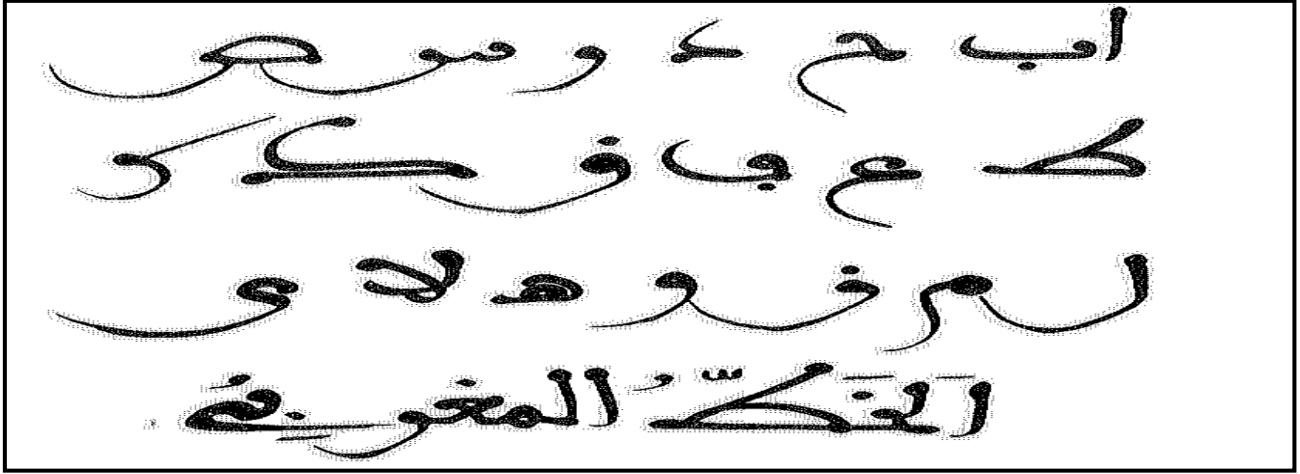 ا ب ح د ر س ص
ط ع ڢ ڧ ك ك
ل م ن و ه لا ى
الخَطُّ المغربي